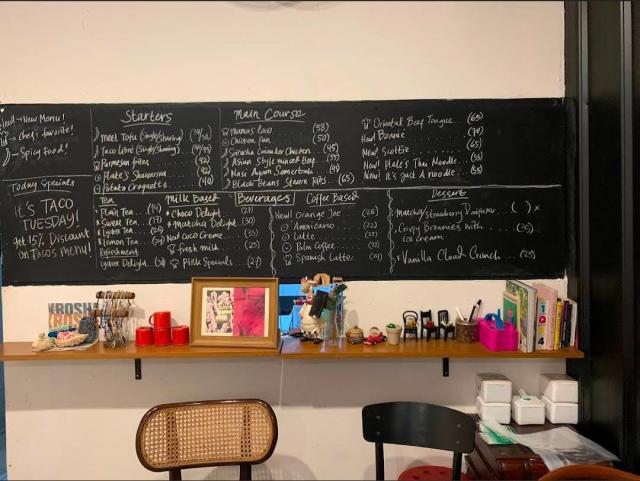 New! → New Menu!
→ chef's favorite!
→ Spicy food!
Today Specials
IT'S TACO
TUESDAY!
Get 15% Discount
on Tacos menu!
Starters
Meet Tofu (Single/Sharing)
Taco Libré (Single/Sharing)
Parmesan frites (42)
Plate's Shawarma (42)
Potato Croquette (40)
Main Course
(58)
Chicken Pan (50)
Sriracha Chicken (45)
Asian Style Minced Beef (55)
Nasi Ayam (49)
Black Beans Steam Rice (65)
Oriental Beef Tongue (65)
New! (70)
New! Scottie (65)
New! Plate's Thai Noodle (55)
New! It's Just A Noodle (55)
Tea
Plain Tea (14)
Sweet Tea (17)
Lychee Tea (25)
Lemon Tea
Refreshment
Lychee Delight (30)
Milk Based
Choco Delight (27)
Matcha Delight (30)
New! Coco Creme (35)
Fresh milk (25)
Pink Specials (27)
Beverages
Coffee Based
New! Orange Joe (28)
Americano (22)
Latte (25)
Bim Coffee
Spanish Latte
Dessert
Matcha/Strawberry Daifuku ( ) x
Crispy Brownies with (35)
Ice Cream
Vanilla Cloud Crunch (25)
KROSH